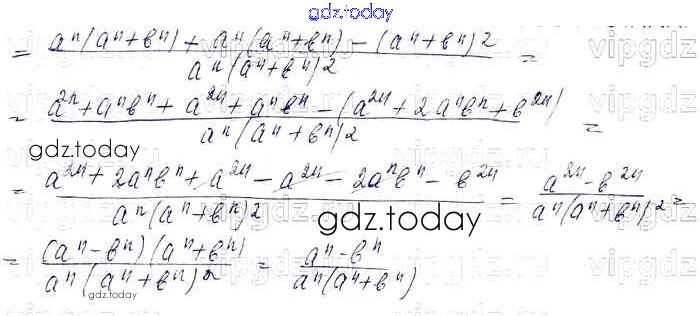 gdz.today
= aⁿ(aⁿ+вⁿ) + aⁿ(aⁿ+вⁿ) - (aⁿ+вⁿ)2 / aⁿ(aⁿ+вⁿ)2 =
= a²ⁿ + aⁿвⁿ + a²ⁿ + aⁿвⁿ - (a²ⁿ + 2aⁿвⁿ + в²ⁿ) / aⁿ(aⁿ+вⁿ)2 =
gdz.today
= a²ⁿ + 2aⁿвⁿ + a²ⁿ - a²ⁿ - 2aⁿвⁿ - в²ⁿ / aⁿ(aⁿ+вⁿ)2 = a²ⁿ - в²ⁿ / aⁿ(aⁿ+вⁿ)2 =
gdz.today
= (aⁿ-вⁿ)(aⁿ+вⁿ) / aⁿ(aⁿ+вⁿ)2 = aⁿ-вⁿ / aⁿ(aⁿ+вⁿ)
gdz.today